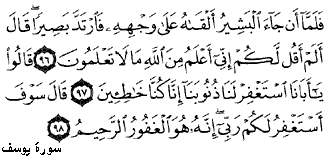 فَلَمَّآ أَن جَآءَ ٱلْبَشِيرُ أَلْقَىٰهُ عَلَىٰ وَجْهِهِۦ فَٱرْتَدَّ بَصِيرًا ۖ قَالَ
أَلَمْ أَقُل لَّكُمْ إِنِّىٓ أَعْلَمُ مِنَ ٱللَّهِ مَا لَا تَعْلَمُونَ ﴿٩٦﴾ قَالُوا۟
يَٰٓأَبَانَا ٱسْتَغْفِرْ لَنَا ذُنُوبَنَآ إِنَّا كُنَّا خَٰطِـِٔينَ ﴿٩٧﴾ قَالَ سَوْفَ
أَسْتَغْفِرُ لَكُمْ رَبِّىٓ ۖ إِنَّهُۥ هُوَ ٱلْغَفُورُ ٱلرَّحِيمُ ﴿٩٨﴾
سورة يوسف